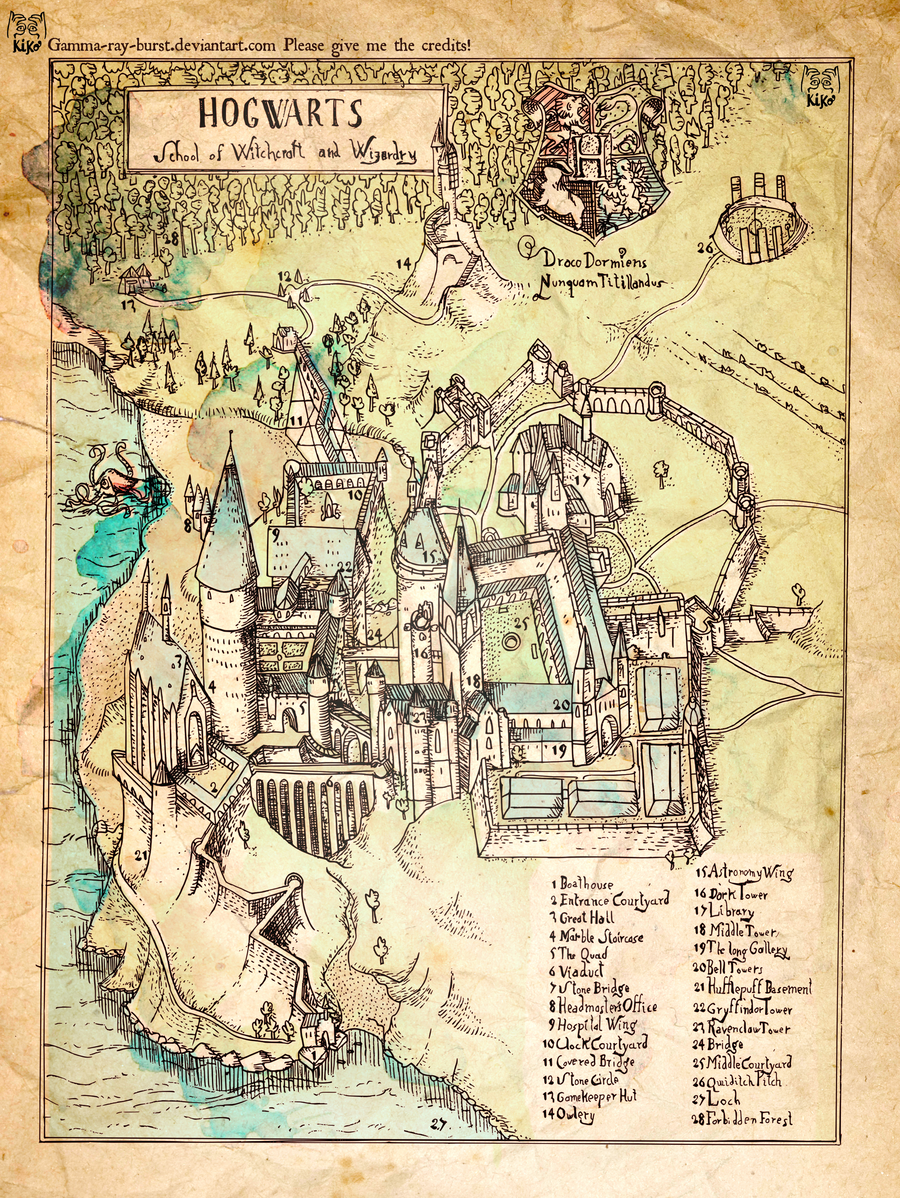 KiKo
Gamma-ray-burst.deviantart.com Please give me the credits!
KiKo
HOGWARTS
School of Witchcraft and Wizardry
H
Draco Dormiens
Nunquam Titillandus
28
26
14
12
13
11
10
17
8
9
15
22
25
24
16
3
4
18
5
23
20
19
2
21
27
1 Boathouse
2 Entrance Courtyard
3 Great Hall
4 Marble Staircase
5 The Quad
6 Viaduct
7 Stone Bridge
8 Headmasters Office
9 Hospital Wing
10 Clock Courtyard
11 Covered Bridge
12 Stone Circle
13 Gamekeeper Hut
14 Owlery
15 Astronomy Wing
16 Dark Tower
17 Library
18 Middle Tower
19 The long Gallery
20 Bell Towers
21 Hufflepuff Basement
22 Gryffindor Tower
23 Ravenclaw Tower
24 Bridge
25 Middle Courtyard
26 Quiditch Pitch
27 Loch
28 Forbidden Forest